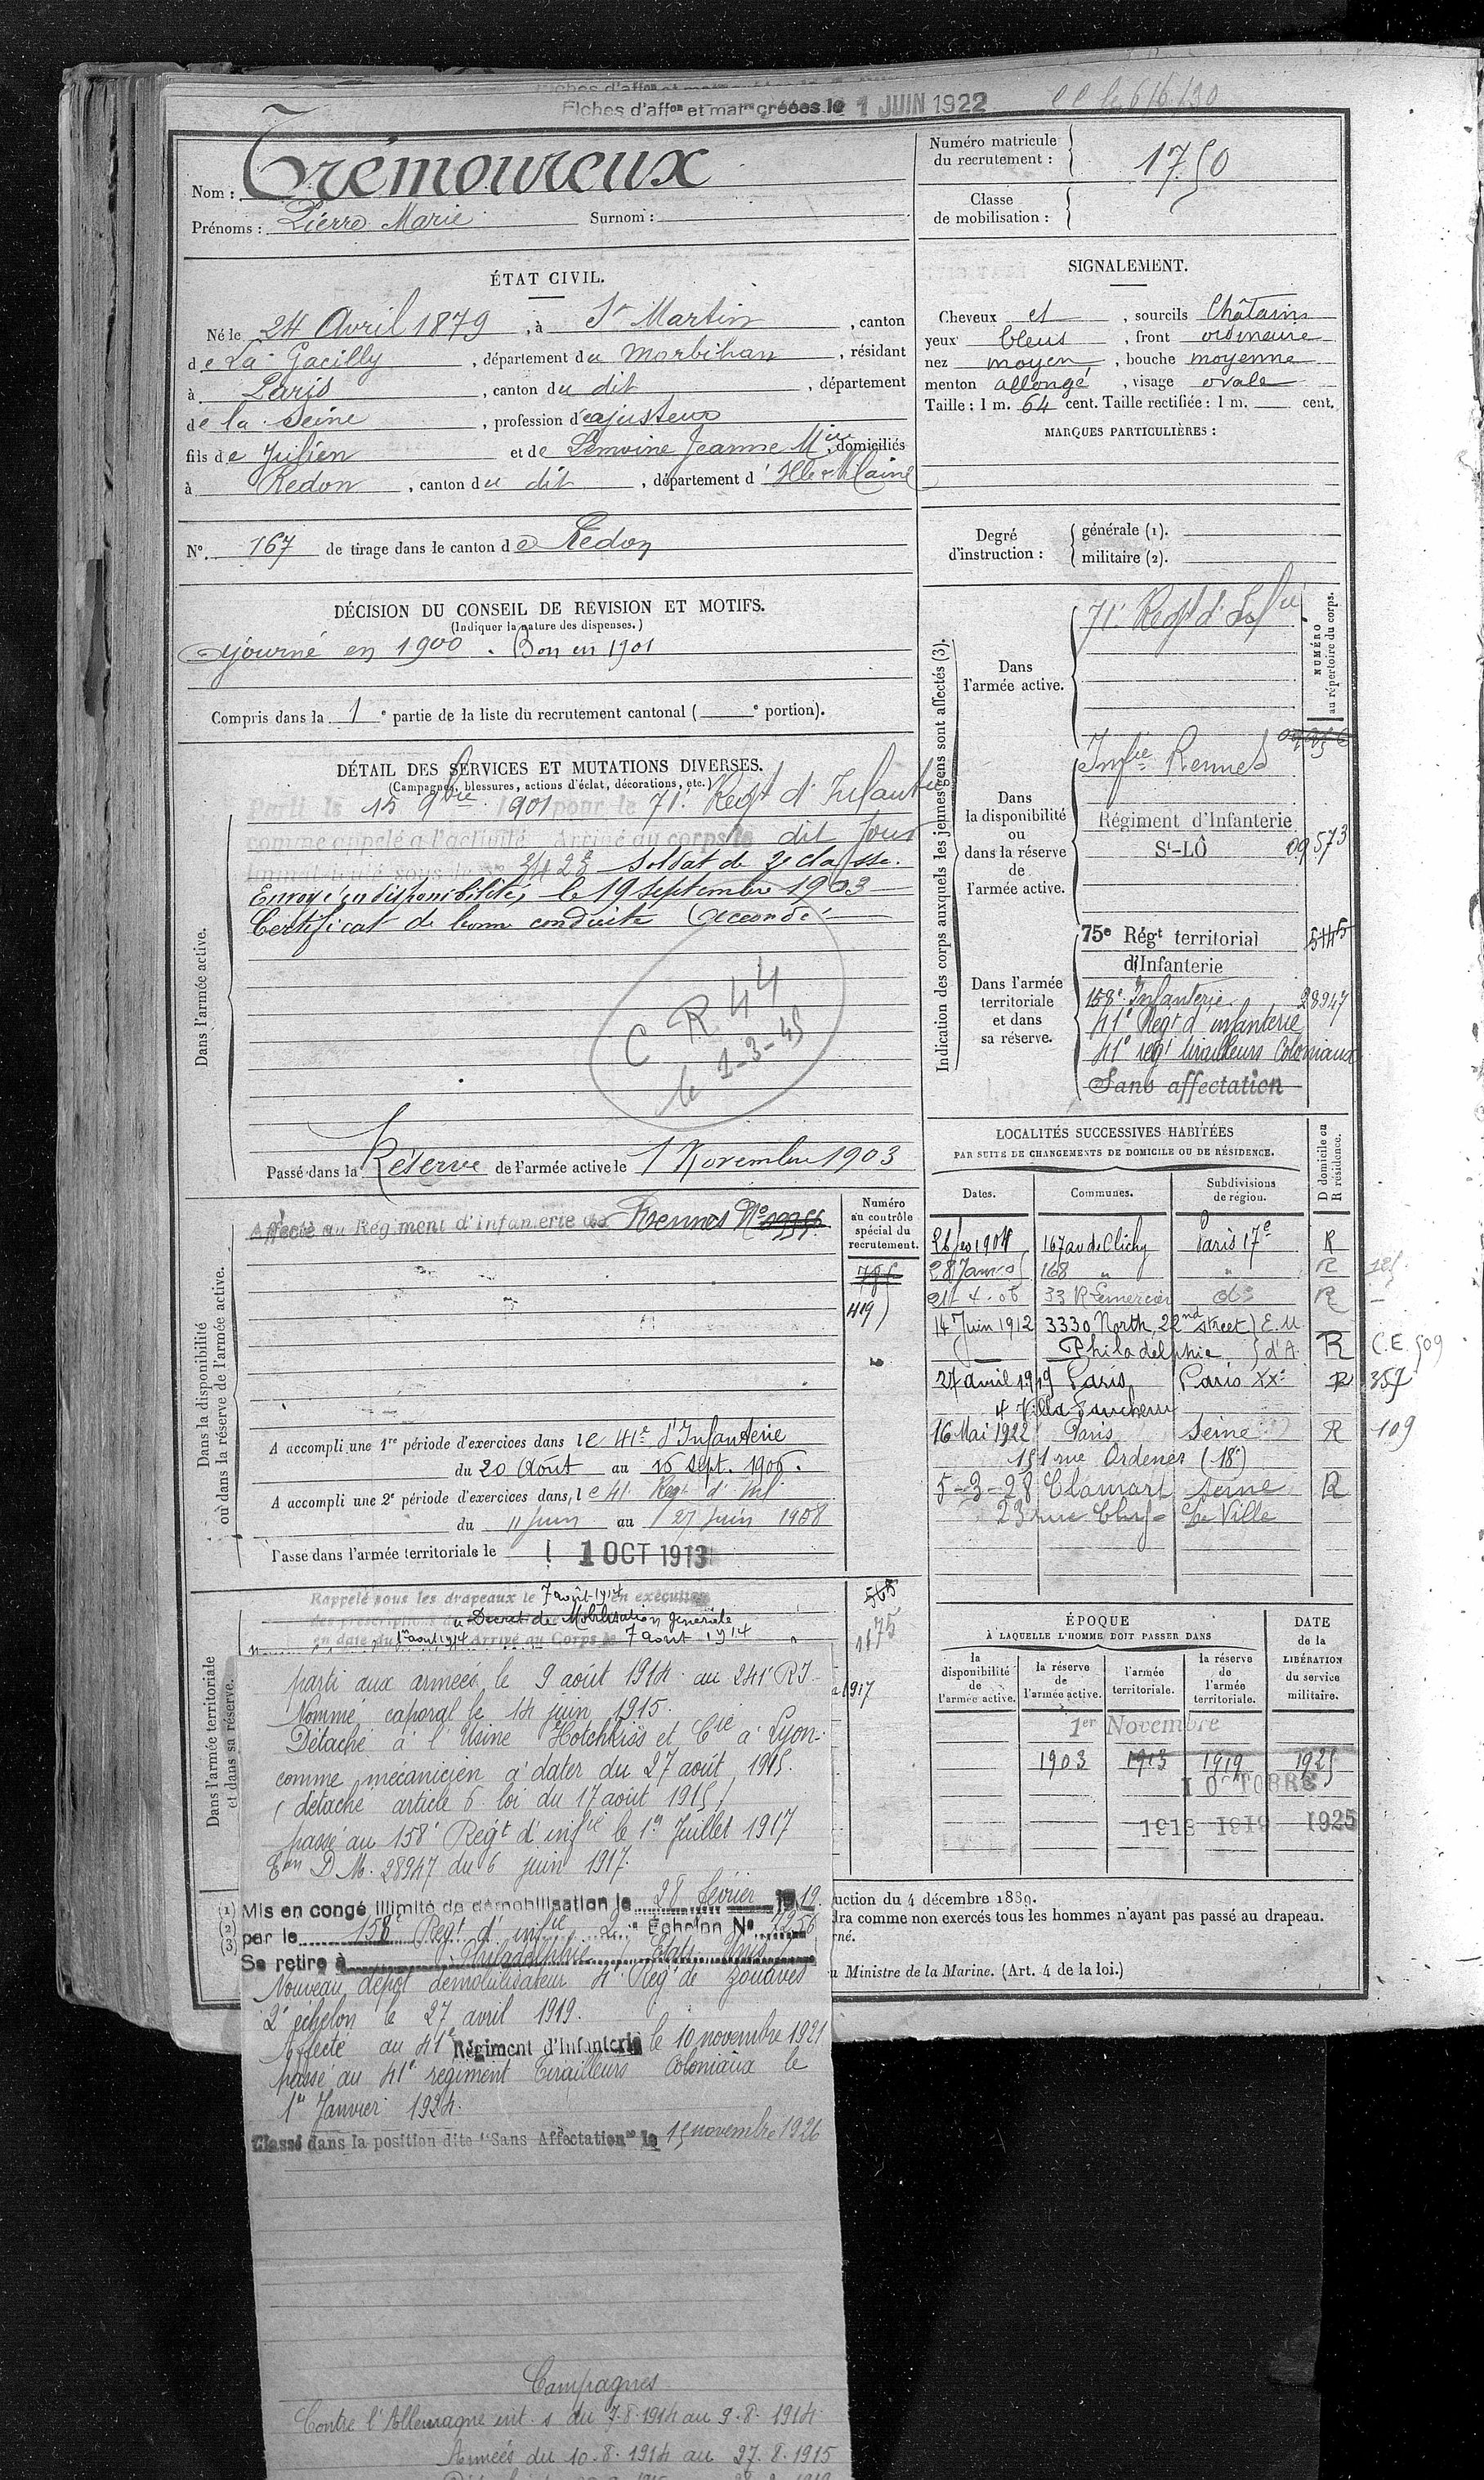 Fiches d'affon et matre créées le 1 JUIN 1922
Nom : Trémoureux
Prénoms : Pierre Marie Surnom :
Numéro matricule du recrutement : 1750
Classe de mobilisation :
ÉTAT CIVIL.
Né le 24 Avril 1879, à St Martin, canton
de La Gacilly, département du Morbihan, résidant
à Paris, canton du dit, département
de la Seine, profession d'ajusteur
fils de Julien et de Lemoine Jeanne Mie, domiciliés
à Redon, canton du dit, département d'Ille & Vilaine
N° 167 de tirage dans le canton de Redon
SIGNALEMENT.
Cheveux et, sourcils Châtains
yeux bleus, front ordinaire
nez moyen, bouche moyenne
menton allongé, visage ovale
Taille : 1 m. 64 cent. Taille rectifiée : 1 m. cent.
MARQUES PARTICULIÈRES :
Degré d'instruction : générale (1).
militaire (2).
DÉCISION DU CONSEIL DE REVISION ET MOTIFS.
(Indiquer la nature des dispenses.)
Ajourné en 1900. Bon en 1901
Compris dans la 1e partie de la liste du recrutement cantonal ( e portion).
DÉTAIL DES SERVICES ET MUTATIONS DIVERSES.
(Campagnes, blessures, actions d'éclat, décorations, etc.)
Dans l'armée active.
Parti le 15 9bre 1901 pour le 71e Regt d'Infanterie
comme appelé a l'activité Arrivé au corps le dit jour
Immatriculé sous le soldat de 2e classe.
Envoyé en disponibilité, le 19 septembre 1903
Certificat de bonne conduite Accordé
C R 44
le 1-3-45
Passé dans la Réserve de l'armée active le 1 Novembre 1903
Indication des corps auxquels les jeunes gens sont affectés (3).
NUMÉRO au répertoire du corps.
Dans l'armée active.
71e Regt d'Infie
Dans la disponibilité ou dans la réserve de l'armée active.
Infie Rennes
Régiment d'Infanterie
St-LÔ 09573
Dans l'armée territoriale et dans sa réserve.
75e Régt territorial
d'Infanterie
158e Infanterie 28947
41e Regt d'infanterie
41e régt tirailleurs Coloniaux
Sans affectation
Dans la disponibilité ou dans la réserve de l'armée active.
Numéro au contrôle spécial du recrutement.
Affecté au Régiment d'Infanterie de Rennes No
419
A accompli une 1re période d'exercices dans le 41e d'Infanterie
du 20 Août au 16 sept. 1906.
A accompli une 2e période d'exercices dans le 41 Regt d'Inf
du 11 juin au 27 juin 1908
Passé dans l'armée territoriale le 1 OCT 1913
LOCALITÉS SUCCESSIVES HABITÉES
PAR SUITE DE CHANGEMENTS DE DOMICILE OU DE RÉSIDENCE.
Dates. Communes. Subdivisions de région. D domicile ou R résidence.
1904 167 av de Clichy Paris 17e R
168 " " R
33 R Lemercier do R
14 Juin 1912 3330 North 22nd street E.U.
Philadelphie d'A. R C.E. 509
27 avril 1919 Paris Paris XXe R 357
4 Villa Faucheur
16 Mai 1922 Paris Seine R 109
151 rue Ordener (18e)
5-3-28 Clamart Seine R
23 rue
Dans l'armée territoriale et dans sa réserve.
Rappelé sous les drapeaux le 7 août 1914 en exécution
des prescriptions du Décret de Mobilisation générale
en date du 1er août 1914 Arrivé au Corps le 7 août 1914
1175
parti aux armées le 9 août 1914 au 241e RI
Nommé caporal le 14 juin 1915.
Détaché à l'Usine Hotchkiss et Cie à Lyon
comme mécanicien à dater du 27 août 1915.
(détaché article 6 loi du 17 août 1915)
passé au 158e Regt d'infie le 1er Juillet 1917
Eon D.M. 28947 du 6 juin 1917.
Mis en congé illimité de démobilisation le 28 février 1919
par le 158e Regt d'infie 2e Echelon No
Se retire à Philadelphie (Etats Unis)
Nouveau dépôt démobilisateur 4e Regt de Zouaves
2e échelon le 27 avril 1919.
Affecté au 41e Régiment d'Infanterie le 10 novembre 1921
passé au 41e régiment Tirailleurs Coloniaux le
1er Janvier 1924.
Classé dans la position dite "Sans Affectation" le 15 novembre 1926
ÉPOQUE
À LAQUELLE L'HOMME DOIT PASSER DANS
DATE de la LIBÉRATION du service militaire.
la disponibilité de l'armée active.
la réserve de l'armée active.
l'armée territoriale.
la réserve de l'armée territoriale.
1er Novembre
1903 1913 1919 1925
1 OCTOBRE
1913 1919 1925
(1)
(2)
(3)
uction du 4 décembre 1889.
dra comme non exercés tous les hommes n'ayant pas passé au drapeau.
rné.
u Ministre de la Marine. (Art. 4 de la loi.)
Campagnes
Contre l'Allemagne int. s du 7.8.1914 au 9.8.1914
Armées du 10.8.1914 au 27.8.1915